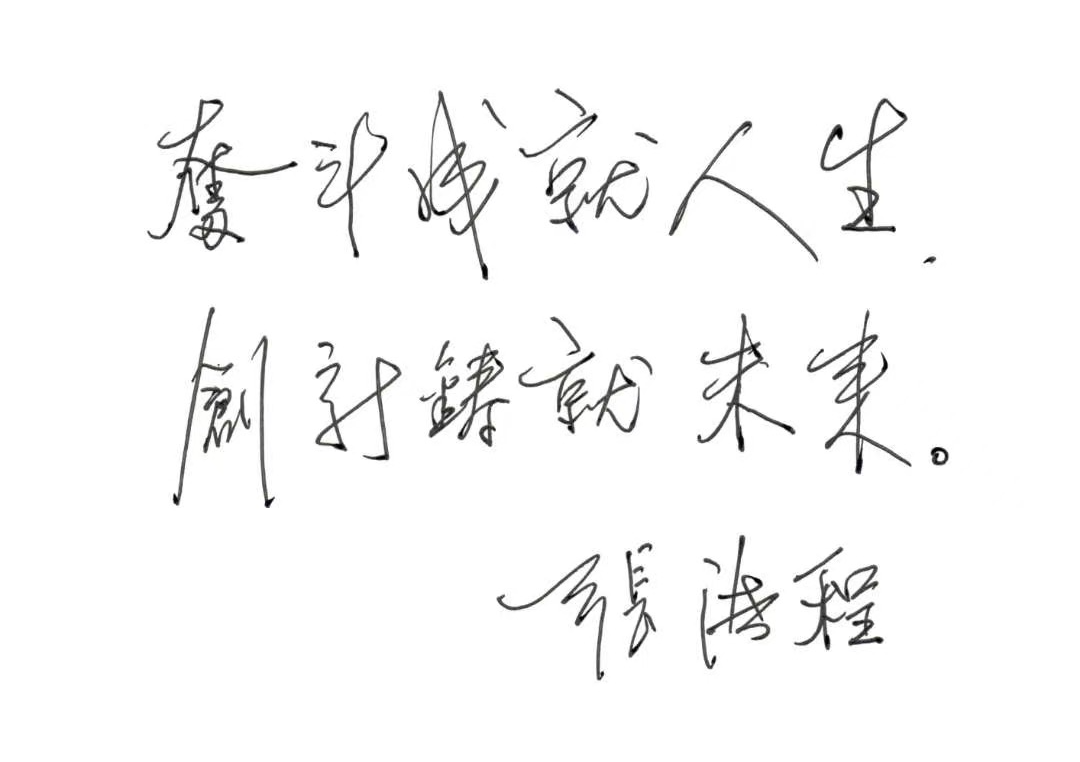 奮斗成就人生.
創新鑄就未来。
張浩程